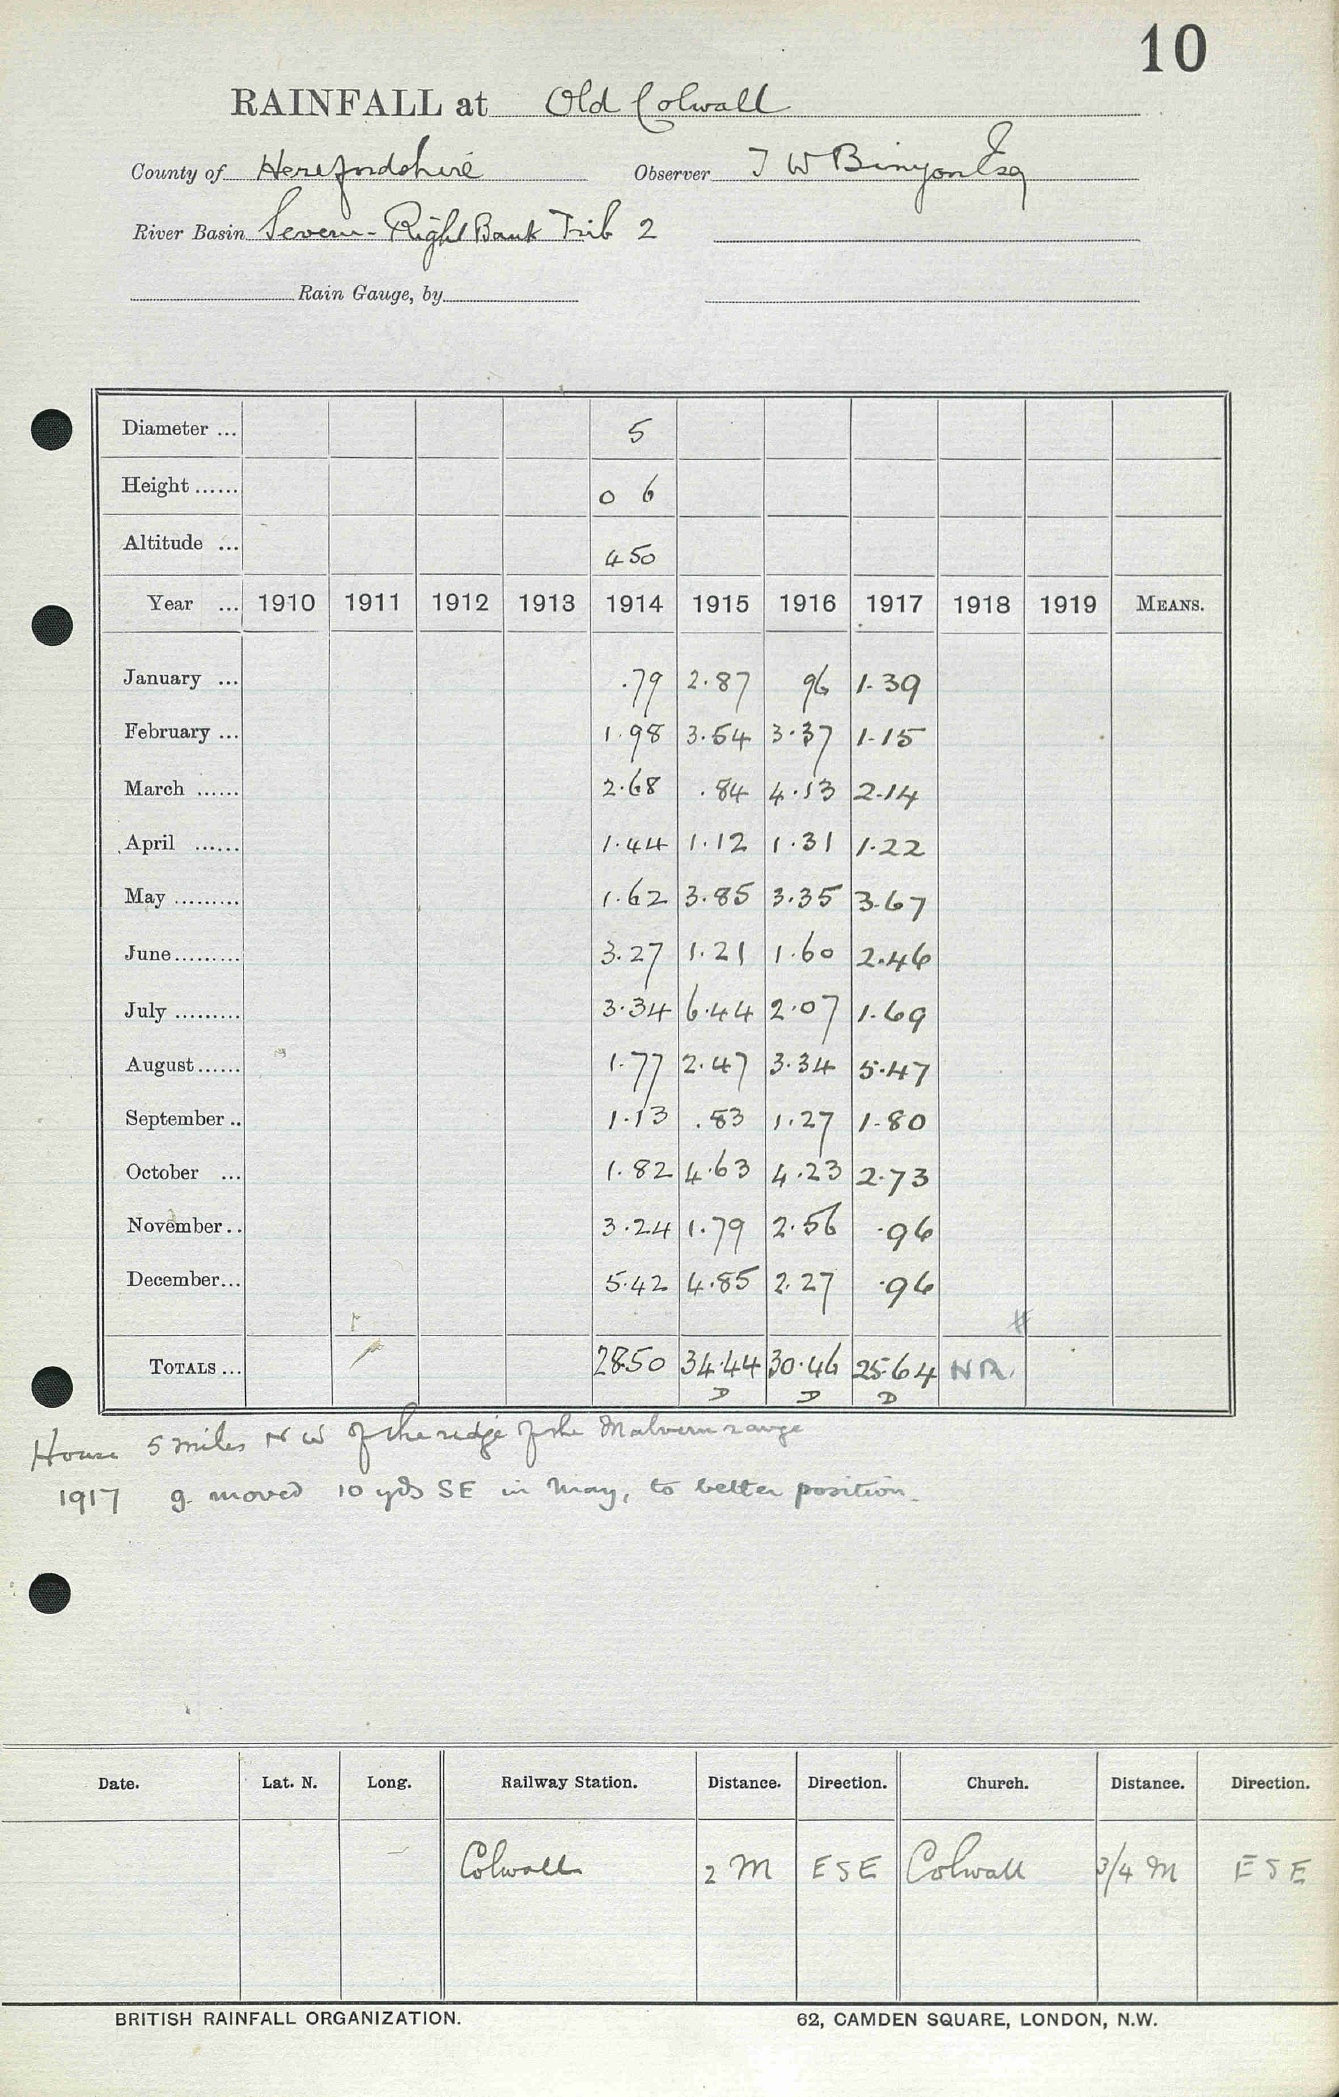 10
RAINFALL at Old Colwall
County of Herefordshire Observer T W Binyon Esq
River Basin Severn - Right Bank Trib 2
Rain Gauge, by
Diameter ... 5
Height ...... 0 6
Altitude ... 450
Year ... 1910 1911 1912 1913 1914 1915 1916 1917 1918 1919 MEANS.
January ... .79 2.87 96 1.39
February ... 1.98 3.54 3.37 1.15
March ...... 2.68 .84 4.13 2.14
April ...... 1.44 1.12 1.31 1.22
May ......... 1.62 3.85 3.35 3.67
June ......... 3.27 1.21 1.60 2.46
July ......... 3.34 6.44 2.07 1.69
August ...... 1.77 2.47 3.34 5.47
September .. 1.13 .83 1.27 1.80
October ... 1.82 4.63 4.23 2.73
November .. 3.24 1.79 2.56 .96
December ... 5.42 4.85 2.27 .96
#
TOTALS ... 28.50 34.44 30.46 25.64 NR
D D D
House 5 miles N W of the ridge of the Malvern range
1917 g. moved 10 yds SE in May, to better position.
Date. Lat. N. Long. Railway Station. Distance. Direction. Church. Distance. Direction.
Colwall 2 M ESE Colwall 3/4 M ESE
BRITISH RAINFALL ORGANIZATION. 62, CAMDEN SQUARE, LONDON, N.W.